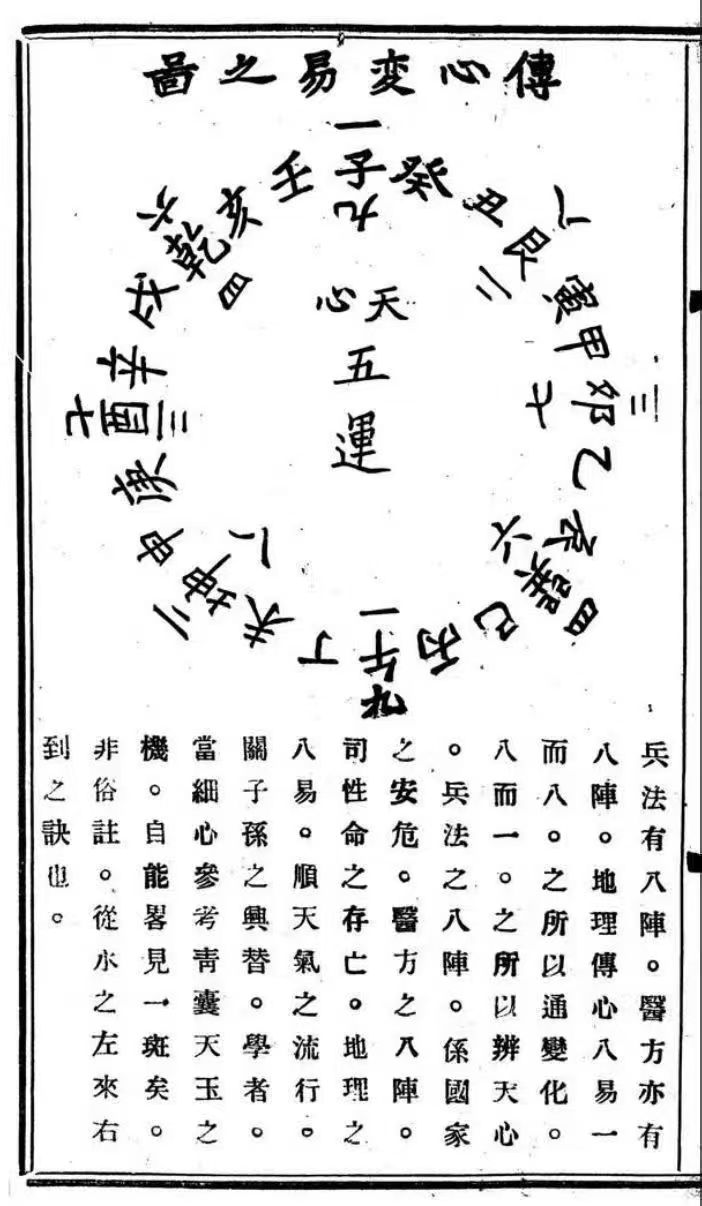 傳心変易之啚
一
子
九
癸
丑
八
艮
二
寅
甲
三
卯
七
乙
辰
巽
四
六
巳
丙
一
午
九
丁
未
坤
二
八
申
庚
七
酉
三
辛
戌
乾
六
四
亥
壬
天心
五
運
兵法有八陣。醫方亦有
八陣。地理傳心八易一
而八。之所以通變化。
八而一。之所以辨天心
。兵法之八陣。係國家
之安危。醫方之八陣。
司性命之存亡。地理之
八易。順天氣之流行。
關子孫之興替。學者。
當細心參考靑囊天玉之
機。自能畧見一斑矣。
非俗註。從水之左來右
到之訣也。